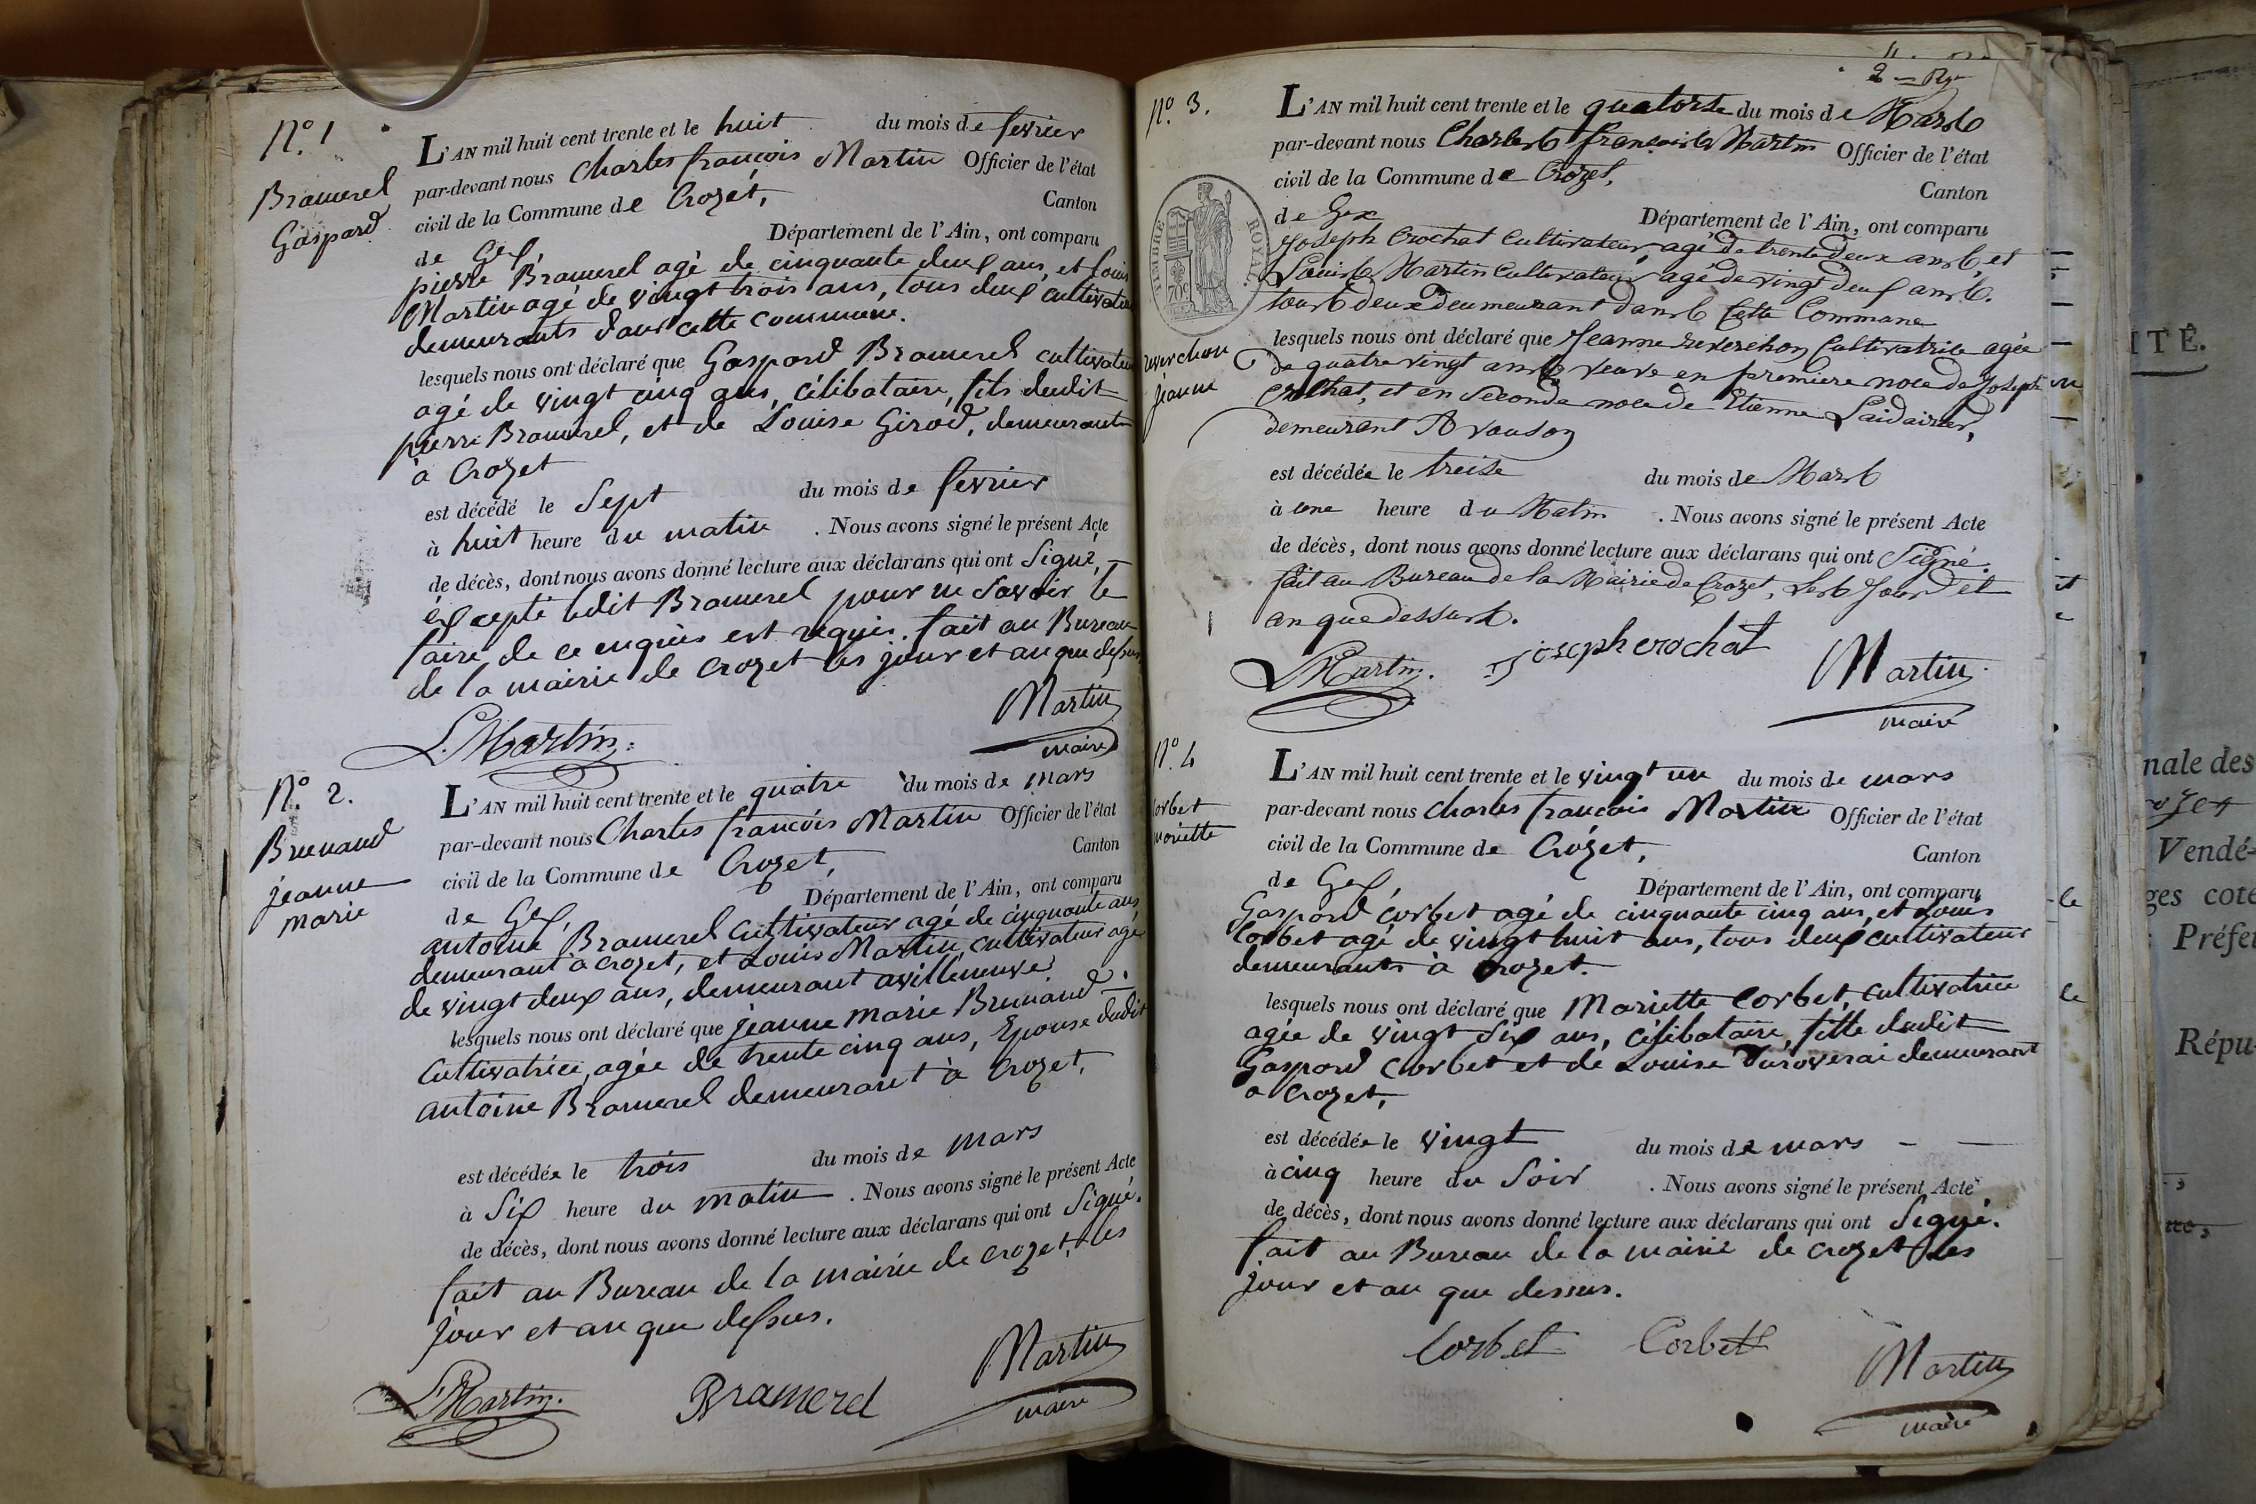 N.º 1
Bramerel
Gaspard
L'AN mil huit cent trente et le huit du mois de fevrier
par-devant nous Charles françois Martin Officier de l'état
civil de la Commune de Crozét, Canton
de Gex, Département de l'Ain, ont comparu
pierre Bramerel agé de cinquante deux ans, et Louis
Martin agé de vingt trois ans, tous deux cultivateurs
demeurants dans cette commune.
lesquels nous ont déclaré que Gaspard Bramerel cultivateur
agé de vingt cinq ans, célibataire, fils dudit
pierre Bramerel, et de Louise Girod, demeurant
à Crozet
est décédé le Sept du mois de fevrier
à huit heure du matin . Nous avons signé le présent Acte
de décès, dont nous avons donné lecture aux déclarans qui ont Signé,
éxcepté ledit Bramerel pour ne Savoir le
faire de ce enquis est requis. fait au Bureau
de la mairie de Crozet les jour et an que dessus,
L. Martin. Martin
maire
N.º 2.
Brunand
jeanne
marie
L'AN mil huit cent trente et le quatre du mois de mars
par-devant nous Charles francois Martin Officier de l'état
civil de la Commune de Crozet, Canton
de Gex, Département de l'Ain, ont comparu
antoine Bramerel Cultivateur agé de cinquante ans
demeurant à crozet, et Louis Martin, cultivateur agé
de vingt deux ans, demeurant avilleneuve.
lesquels nous ont déclaré que jeanne marie Brunand
Cultivatrice, agée de trente cinq ans, Epouse dudit
antoine Bramerel demeurant à Crozet,
est décédée le trois du mois de mars
à Six heure du matin . Nous avons signé le présent Acte
de décès, dont nous avons donné lecture aux déclarans qui ont Signé.
fait au Bureau de la mairie de crozet, les
jour et an que dessus.
L Martin. Bramerel Martin
maire
2
N.º 3.
reverchon
jeanne
TIMBRE ROYAL
70c
L'AN mil huit cent trente et le quatorse du mois de Mars
par-devant nous Charles francois Martin Officier de l'état
civil de la Commune de Crozet, Canton
de Gex Département de l'Ain, ont comparu
Joseph Crochat Cultivateur, agé de trente deux ans, et
Louis Martin Cultivateur, agé de vingt deux ans.
tous deux demeurant dans Cette Commune
lesquels nous ont déclaré que Jeanne reverchon Cultivatrice agée
de quatre vingt ans veuve en premiere noce de Joseph
Crochat, et en Seconde noce de Etienne
demeurent A vouson
est décédée le treise du mois de Mars
à une heure du Matin . Nous avons signé le présent Acte
de décès, dont nous avons donné lecture aux déclarans qui ont Signé.
fait au Bureau de la Mairie de Crozet, Les Jour et
an que dessus.
L Martin. Joseph crochat Martin
maire
N.º 4
Corbet
mariette
L'AN mil huit cent trente et le vingt un du mois de mars
par-devant nous Charles francois Martin Officier de l'état
civil de la Commune de Crozet, Canton
de Gex, Département de l'Ain, ont comparu
Gaspard Corbet agé de cinquante cinq ans, et Louis
Corbet agé de vingt huit ans, tous deux cultivateur
demeurants à Crozet.
lesquels nous ont déclaré que Mariette Corbet, cultivatrice
agée de vingt Six ans, célibataire, fille dudit
Gaspard Corbet et de Louise Duroverai demeurant
a Crozet,
est décédée le vingt du mois de mars
à cinq heure du Soir . Nous avons signé le présent Acte
de décès, dont nous avons donné lecture aux déclarans qui ont Signé.
fait au Bureau de la mairie de Crozet Les
jour et an que dessus.
Corbet Corbet Martin
maire
ITÉ.
nale des
Vendé-
ges coté
Préfet
Répu-